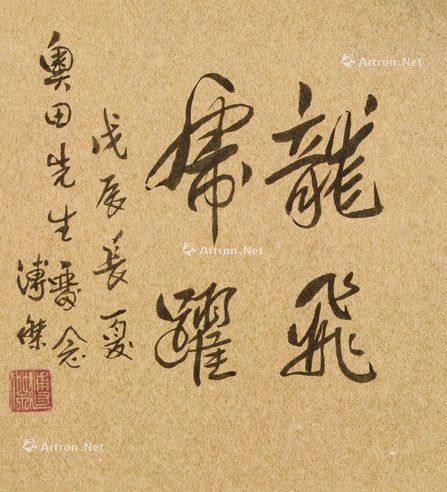 龍飛
虎躍
戊辰長夏
奥田先生留念
溥傑
Artron.Net
Artron.Net
Artron.Net
Artron.Net